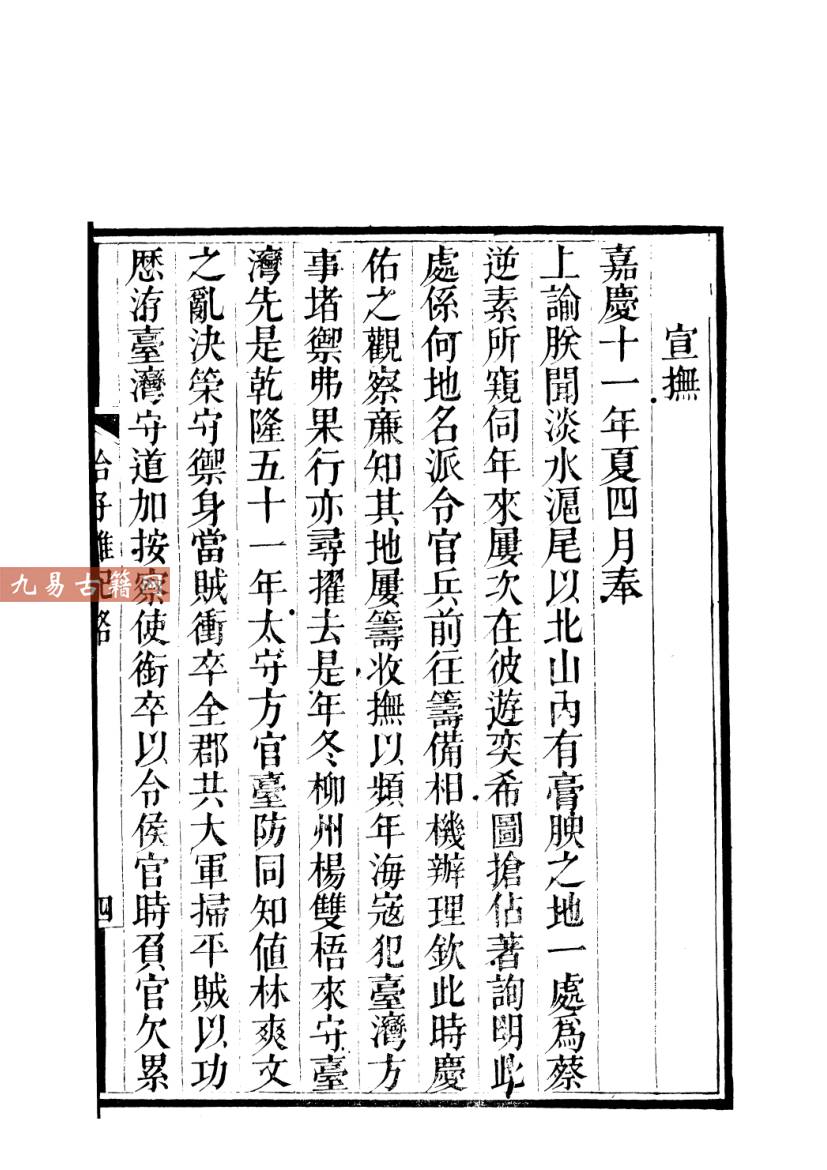 宣撫
嘉慶十一年夏四月奉
上諭朕聞淡水滬尾以北山內有膏腴之地一處爲蔡
逆素所窺伺年來屢次在彼遊奕希圖搶佔著詢明此
處係何地名派令官兵前往籌備相機辦理欽此時慶
佑之觀察亷知其地屢籌收撫以頻年海寇犯臺灣方
事堵禦弗果行亦尋擢去是年冬柳州楊雙梧來守臺
灣先是乾隆五十一年太守方官臺防同知値林爽文
之亂決筞守禦身當賊衝卒全郡共大軍掃平賊以功
歷洊臺灣守道加按察使銜卒以令侯官時負官欠累
四
九易古籍网